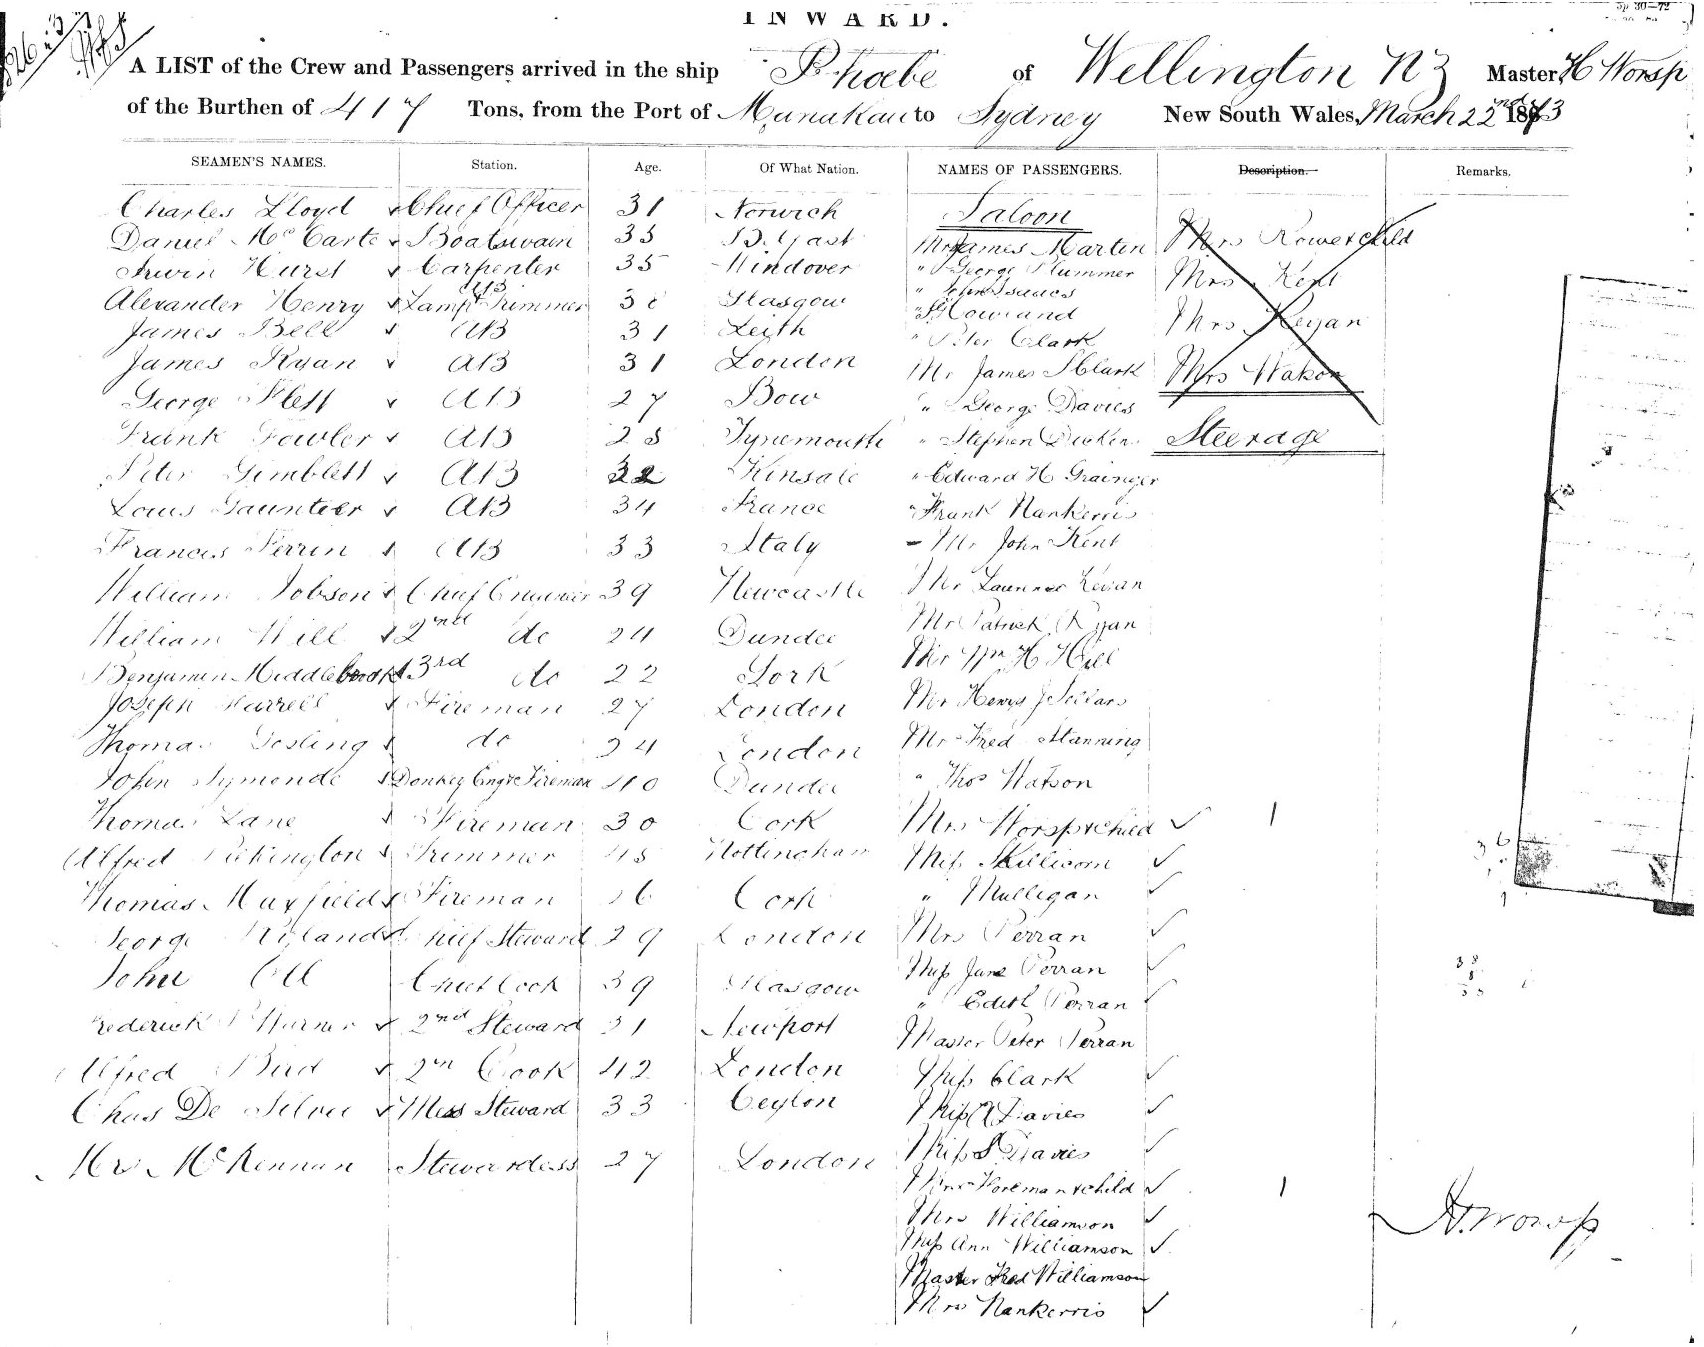 INWARD.
A LIST of the Crew and Passengers arrived in the ship Phoebe of Wellington NZ Master, H Worsp
of the Burthen of 417 Tons, from the Port of Manakau to Sydney New South Wales, March 22nd 1873
SEAMEN'S NAMES. Station. Age. Of What Nation. NAMES OF PASSENGERS. Description. Remarks.
Charles Lloyd Chief Officer 31 Norwich Saloon
Daniel McCarte Boatswain 35 Belfast Mr James Martin Mrs Rower &child
Irwin Hurst Carpenter 35 Hindover " George Plummer Mrs Kent
" John Isaacs
Alexander Henry AB & Lamp Trimmer Glasgow " Howland
James Bell AB 31 Leith " Peter Clark Mrs Keyan
James Ryan AB 31 London Mr James S Clark Mrs Watson
George Flett AB 27 Bow " George Davies
Frank Fowler AB 25 Tynemouth " Stephen Dicken Steerage
Peter Gimblett AB 32 Kinsale " Edward H Grainger
Louis Gauntier AB 34 France " Frank Nankerris
Francis Perrin AB 33 Italy Mr John Kent
William Jobson Chief Engineer 39 Newcastle Mr Keyan
William Will 2nd do 24 Dundee Mr Patrick Ryan
Benjamin Middlebrook 3rd do 22 York Mr Wm H Hill
Joseph Harrell Fireman 27 London Mr Henry J Sellars
Thomas Gosling do 24 London Mr Fred Manning
John Symonds Donkey Engr & Fireman 40 Dundee " Thos Watson
Thomas Lane Fireman 30 Cork Mrs Worsp &child 1
Alfred Pilkington Trimmer 45 Nottingham Miss Skillicorn
Thomas Maxfield Fireman 26 Cork " Mulligan
George Ryland Chief Steward 29 London Mrs Perran
John Chief Cook 39 Glasgow Miss Jane Perran
" Edith Perran
Frederick Warner 2nd Steward 31 Newport Master Peter Perran
Alfred Bird 2nd Cook 42 London Miss Clark
Chas De Silva Mess Steward 33 Ceylon Miss A Davies
Mrs McKennan Stewardess 27 London Miss S Davies
Mrs Foreman &child 1
Mrs Williamson
H. Worsp
Miss Ann Williamson
Master Fred Williamson
Mrs Nankerris